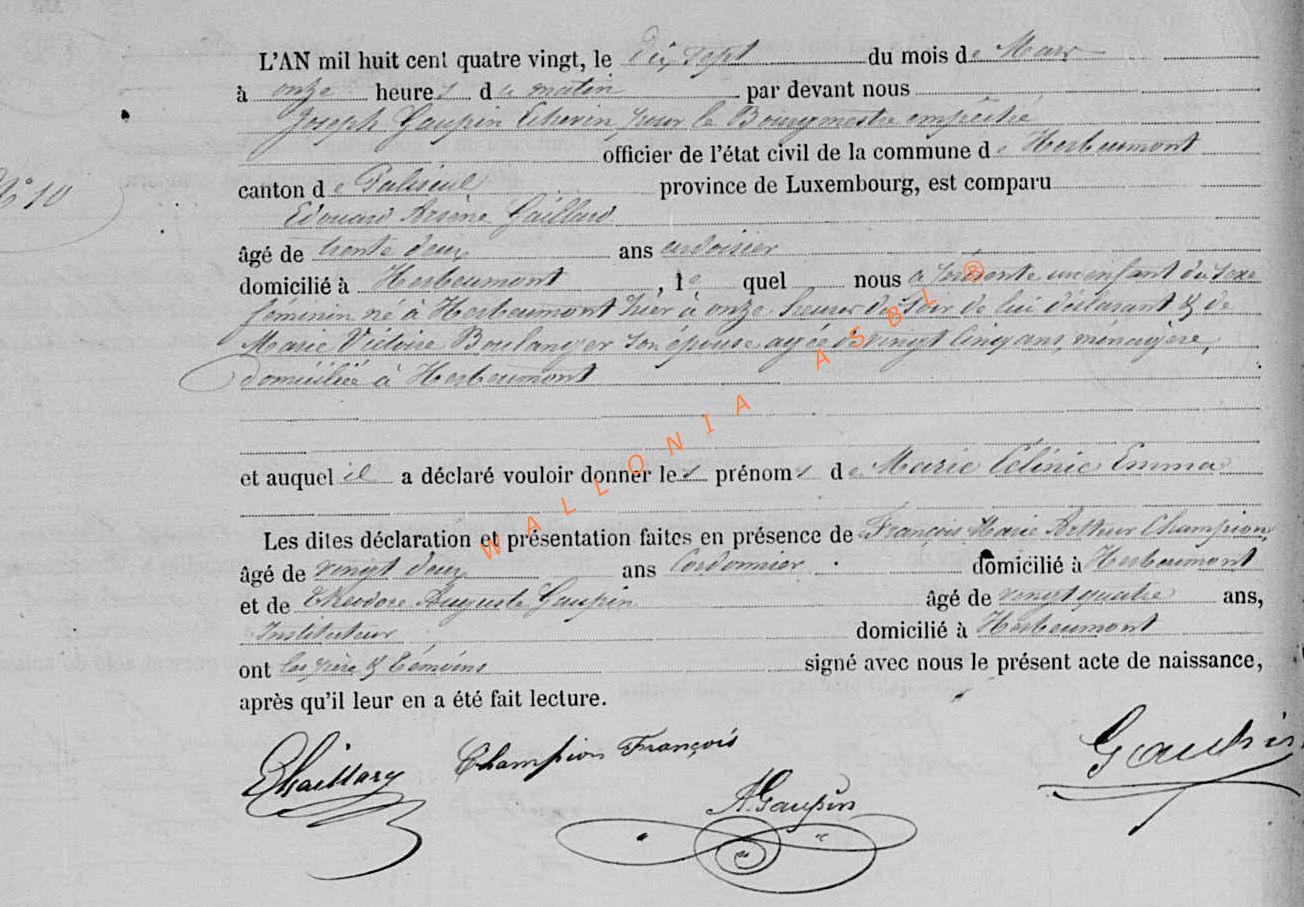 L'AN mil huit cent quatre vingt, le dix sept du mois de Mars
à onze heures du matin par devant nous
Joseph Gaupin Echevin pour le Bourgmestre empêché
officier de l'état civil de la commune de Herbeumont
N° 10
canton de Paliseul province de Luxembourg, est comparu
Edouard Arsène Gaillard
âgé de trente deux ans ardoisier
domicilié à Herbeumont, le quel nous a présenté un enfant du sexe
féminin né à Herbeumont hier à onze heures du soir de lui déclarant & de
Marie Victoire Boulanger son épouse agée de vingt cinq ans, ménagère,
domiciliée à Herbeumont
et auquel il a déclaré vouloir donner les prénoms de Marie Célinie Emma
Les dites déclaration et présentation faites en présence de François Marie Arthur Champion,
âgé de vingt deux ans Cordonnier domicilié à Herbeumont
et de Théodore Auguste Gaupin âgé de vingt quatre ans,
Instituteur domicilié à Herbeumont
ont les père & témoins signé avec nous le présent acte de naissance,
après qu'il leur en a été fait lecture.
Champion François
Gaupin
A. Gaupin
WALLONIA ASBL ®